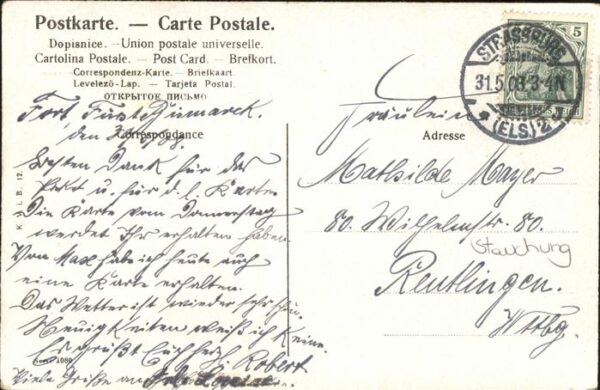 Postkarte. — Carte Postale.
Dopisnice. — Union postale universelle.
Cartolina Postale. — Post Card. — Brefkort.
Correspondenz-Karte. — Briefkaart.
Levelező-Lap. — Tarjeta Postal.
ОТКРЫТОЕ ПИСЬМО
Correspondance
Adresse
Fort Fürst Bismarck.
Besten Dank für das
Paket u. für d. l. Karten
Die Karte vom Donnerstag
werdet Ihr erhalten haben.
Von Max hab ich heute auch
eine Karte erhalten.
Das Wetter ist wieder sehr schön.
Neuigkeiten weiß ich keine.
Es grüßt Euch herzl. Robert
Viele Grüße an
Serie 1080
Fräulein
Mathilde Mayer
80. Wilhelmstr. 80.
Stauchung
Reutlingen.
Wttbg.
STRASSBURG
31.5.08.3-4N
(ELS)2
5